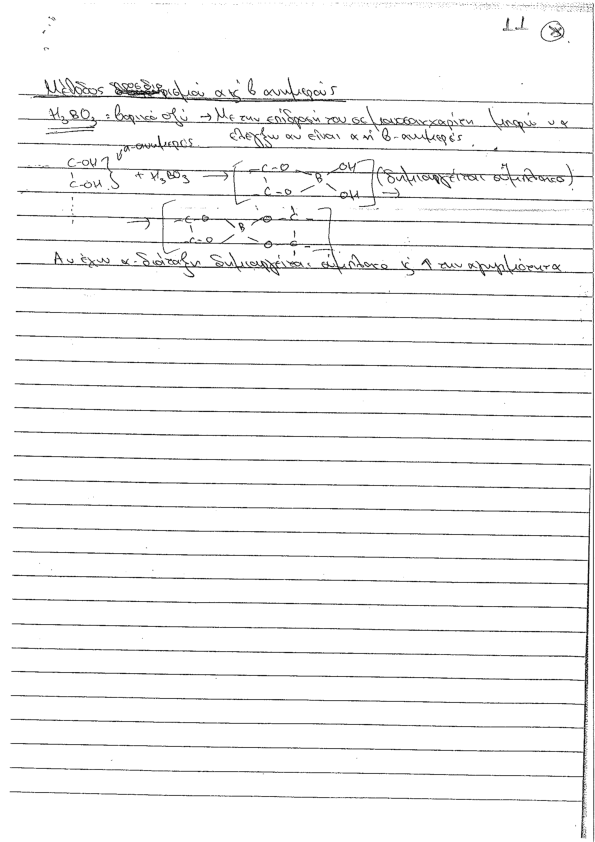 11
Μέθοδος προσδιορισμού α κ' β ανωμερούς
H₃BO₃ : βορικό οξύ → Με την επίδρασή του σε μονοσακχαρίτη μπορώ να
ελέγξω αν είναι α ή β-ανωμερές.
α-ανωμερές
C-OH
C-OH } + H₃BO₃ → [ -C-O B OH (δημιουργείται σύμπλοκο)
C-O OH ] →
→ [ -C-O B O-C-
C-O O-C- ]
Αν έχω α-διάταξη δημιουργείται σύμπλοκο κ' ↑ την αγωγιμότητα